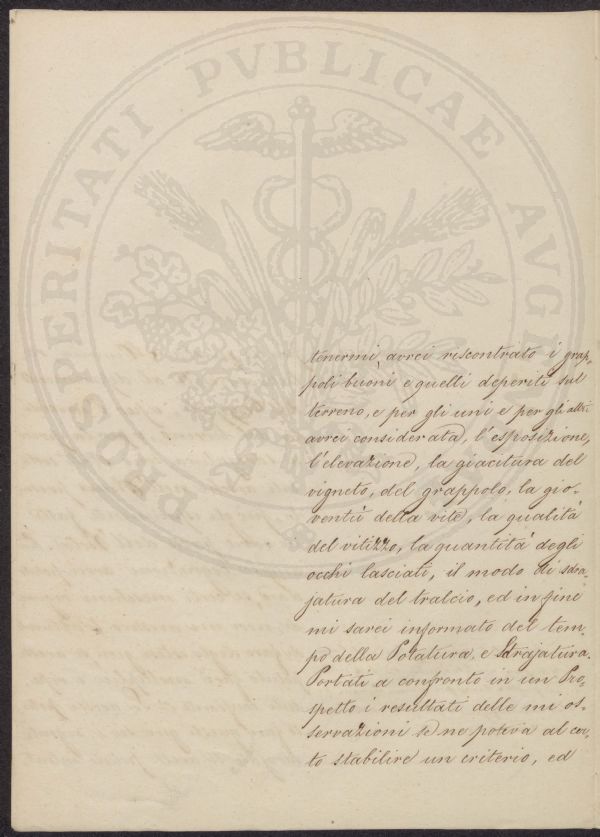 PROSPERITATI PVBLICAE AVGE
tenermi, avrei riscontrato i grap-
poli buoni e quelli deperiti sul
terreno, e per gli uni e per gli altri
avrei considerata, l'esposizione,
l'elevazione, la giacitura del
vigneto, del grappolo, la gio-
ventù della vite, la qualità
del vitizzo, la quantità degli
occhi lasciati, il modo di sdra-
jatura del tralcio, ed in fine
mi sarei informato del tem-
po della Potatura, e Sdrajatura.
Portati a confronto in un Pro-
spetto i resultati delle mi os-
servazioni se ne poteva al cer-
to stabilire un criterio, ed